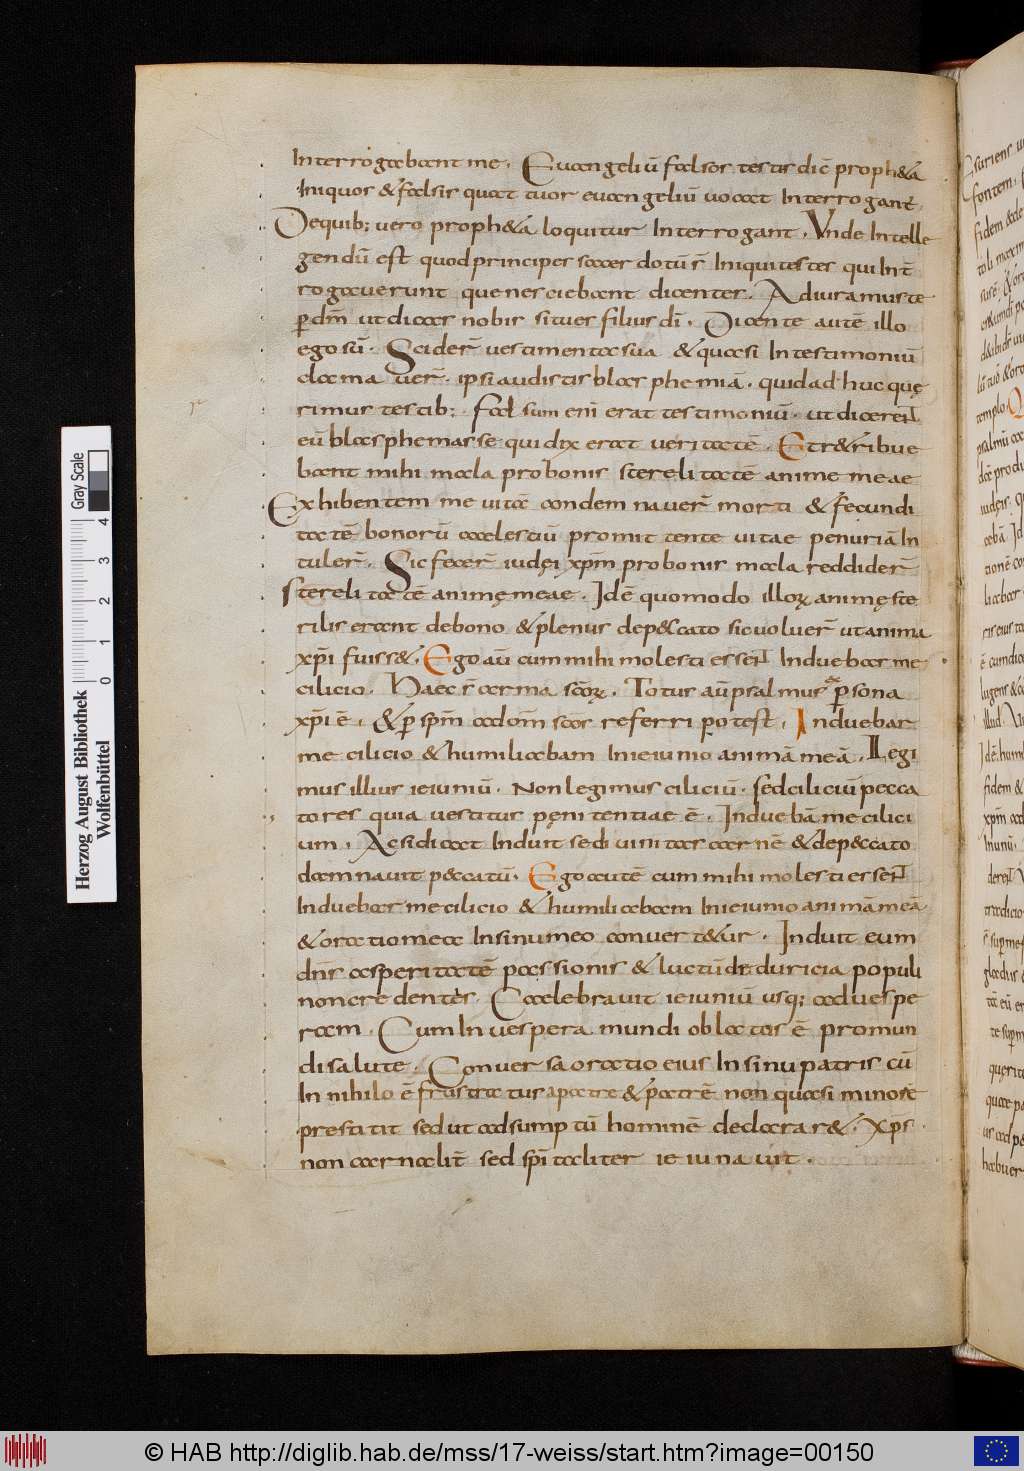 Interrogabant me. Euangeliū falsos testes dic̄ proph&ā
Iniquos & falsis quat tuor euangeliū uocat Interrogant̄,
Dequib; uero proph&ā loquitur Interrogant. Vnde Intelle
gendū est quod principes sacerdotū s̄ Iniqui testes qui Int̄
rogauerunt que nesciebant dicentes. Adiuramuste
ꝑ dm̄ ut dicas nobis si tu es filius dī. Dicente autē illo
ego sū. Scider̄ uestimenta sua & quasi In testimoniū
dcma uer̄. ipsi audistis blasphemiā. quid ad huc quę
rimus testib;. fal sum enī erat testimoniū. ut dicere N̄
eū blasphemasse qui dix erat ueritatē. Etr&ribue
bant mihi mala pro bonis stereli tatē anime meae
Exhibentem me uitā condem nauer̄ morti & fecundi
tatē bonorū caelestiū promit tente uitae penuriā In
tuler̄. Sic fecer̄ iudęi xp̄m pro bonis mala reddider̄
Stereli tatē animę meae. Idē quomodo illoꝝ animę ste
riles erant de bono & plenus de p&cato sic uoluer̄ ut anima
xp̄i fuiss&. Ego aū cum mihi molesti essen̄t Induebar me
cilicio. Haec s̄ arma scōꝝ. Totus aū psalmus ex ꝑsona
xp̄i ē. & ꝑ sp̄m ad om̄ scos referri potest. Induebar
me cilicio & humiliabam In ieiunio animā meā. Legi
mus illius ieiuniū. Non legimus ciliciū. sed ciliciū pecca
tores quia uestitur pęnitentiae ē. Induebā me cilici
um. Ac si dicat Induit se diuinitas carnē & de p&cato
damnauit p&catū. Ego autē cum mihi molesti essen̄t
Induebar me cilicio & humiliabam In ieiunio animā meā
& oratio mea In sinu meo conuert&ur. Induit eum
dn̄s asperitatē passionis & luctū de duricia populi
non credentes. Caelebrauit ieiuniū usq; ad uespe
ram. Cum In uespera mundi oblatus ē pro mun
di salute. Conuersa oratio eius In sinu patris cū
In nihilo ē frustratus a patre & patrē non quasi minore
prestitit sed ut adsumptū hominē declarar&. Xp̄s
non carnalit̄ sed sp̄i taliter ieiunauit.
Herzog August Bibliothek
Wolfenbüttel
0 1 2 3 4
Gray Scale
© HAB http://diglib.hab.de/mss/17-weiss/start.htm?image=00150